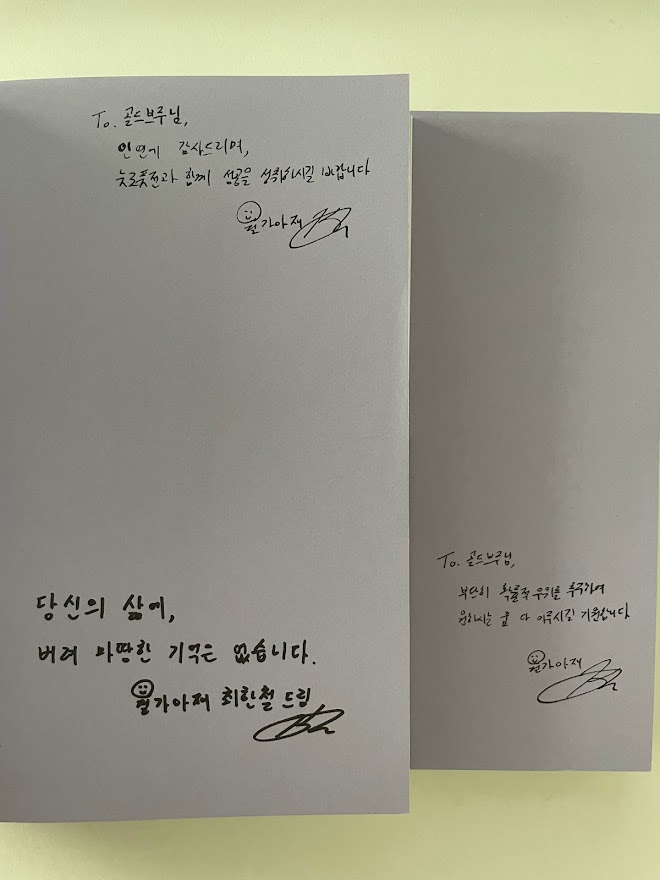 To. 골드브주님,
인연에 감사드리며,
뉴로퓻전과 함께 성공을 성취하시길 바랍니다
월가아재
당신의 삶에,
버려 마땅한 기억은 없습니다.
월가아재 최한철 드림
To. 골드브주님,
부단히 확률적 우위를 추구하여
원하시는 꿈 다 이루시길 기원합니다
월가아재